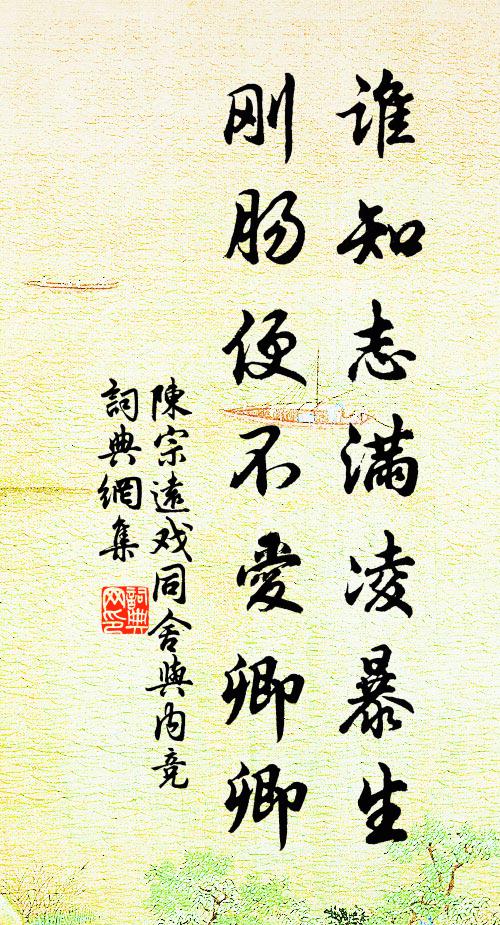 谁知志满凌暴生
刚肠便不爱卿卿
陳宗遠戏同舍與内竞
詞典網集
詞典
网印